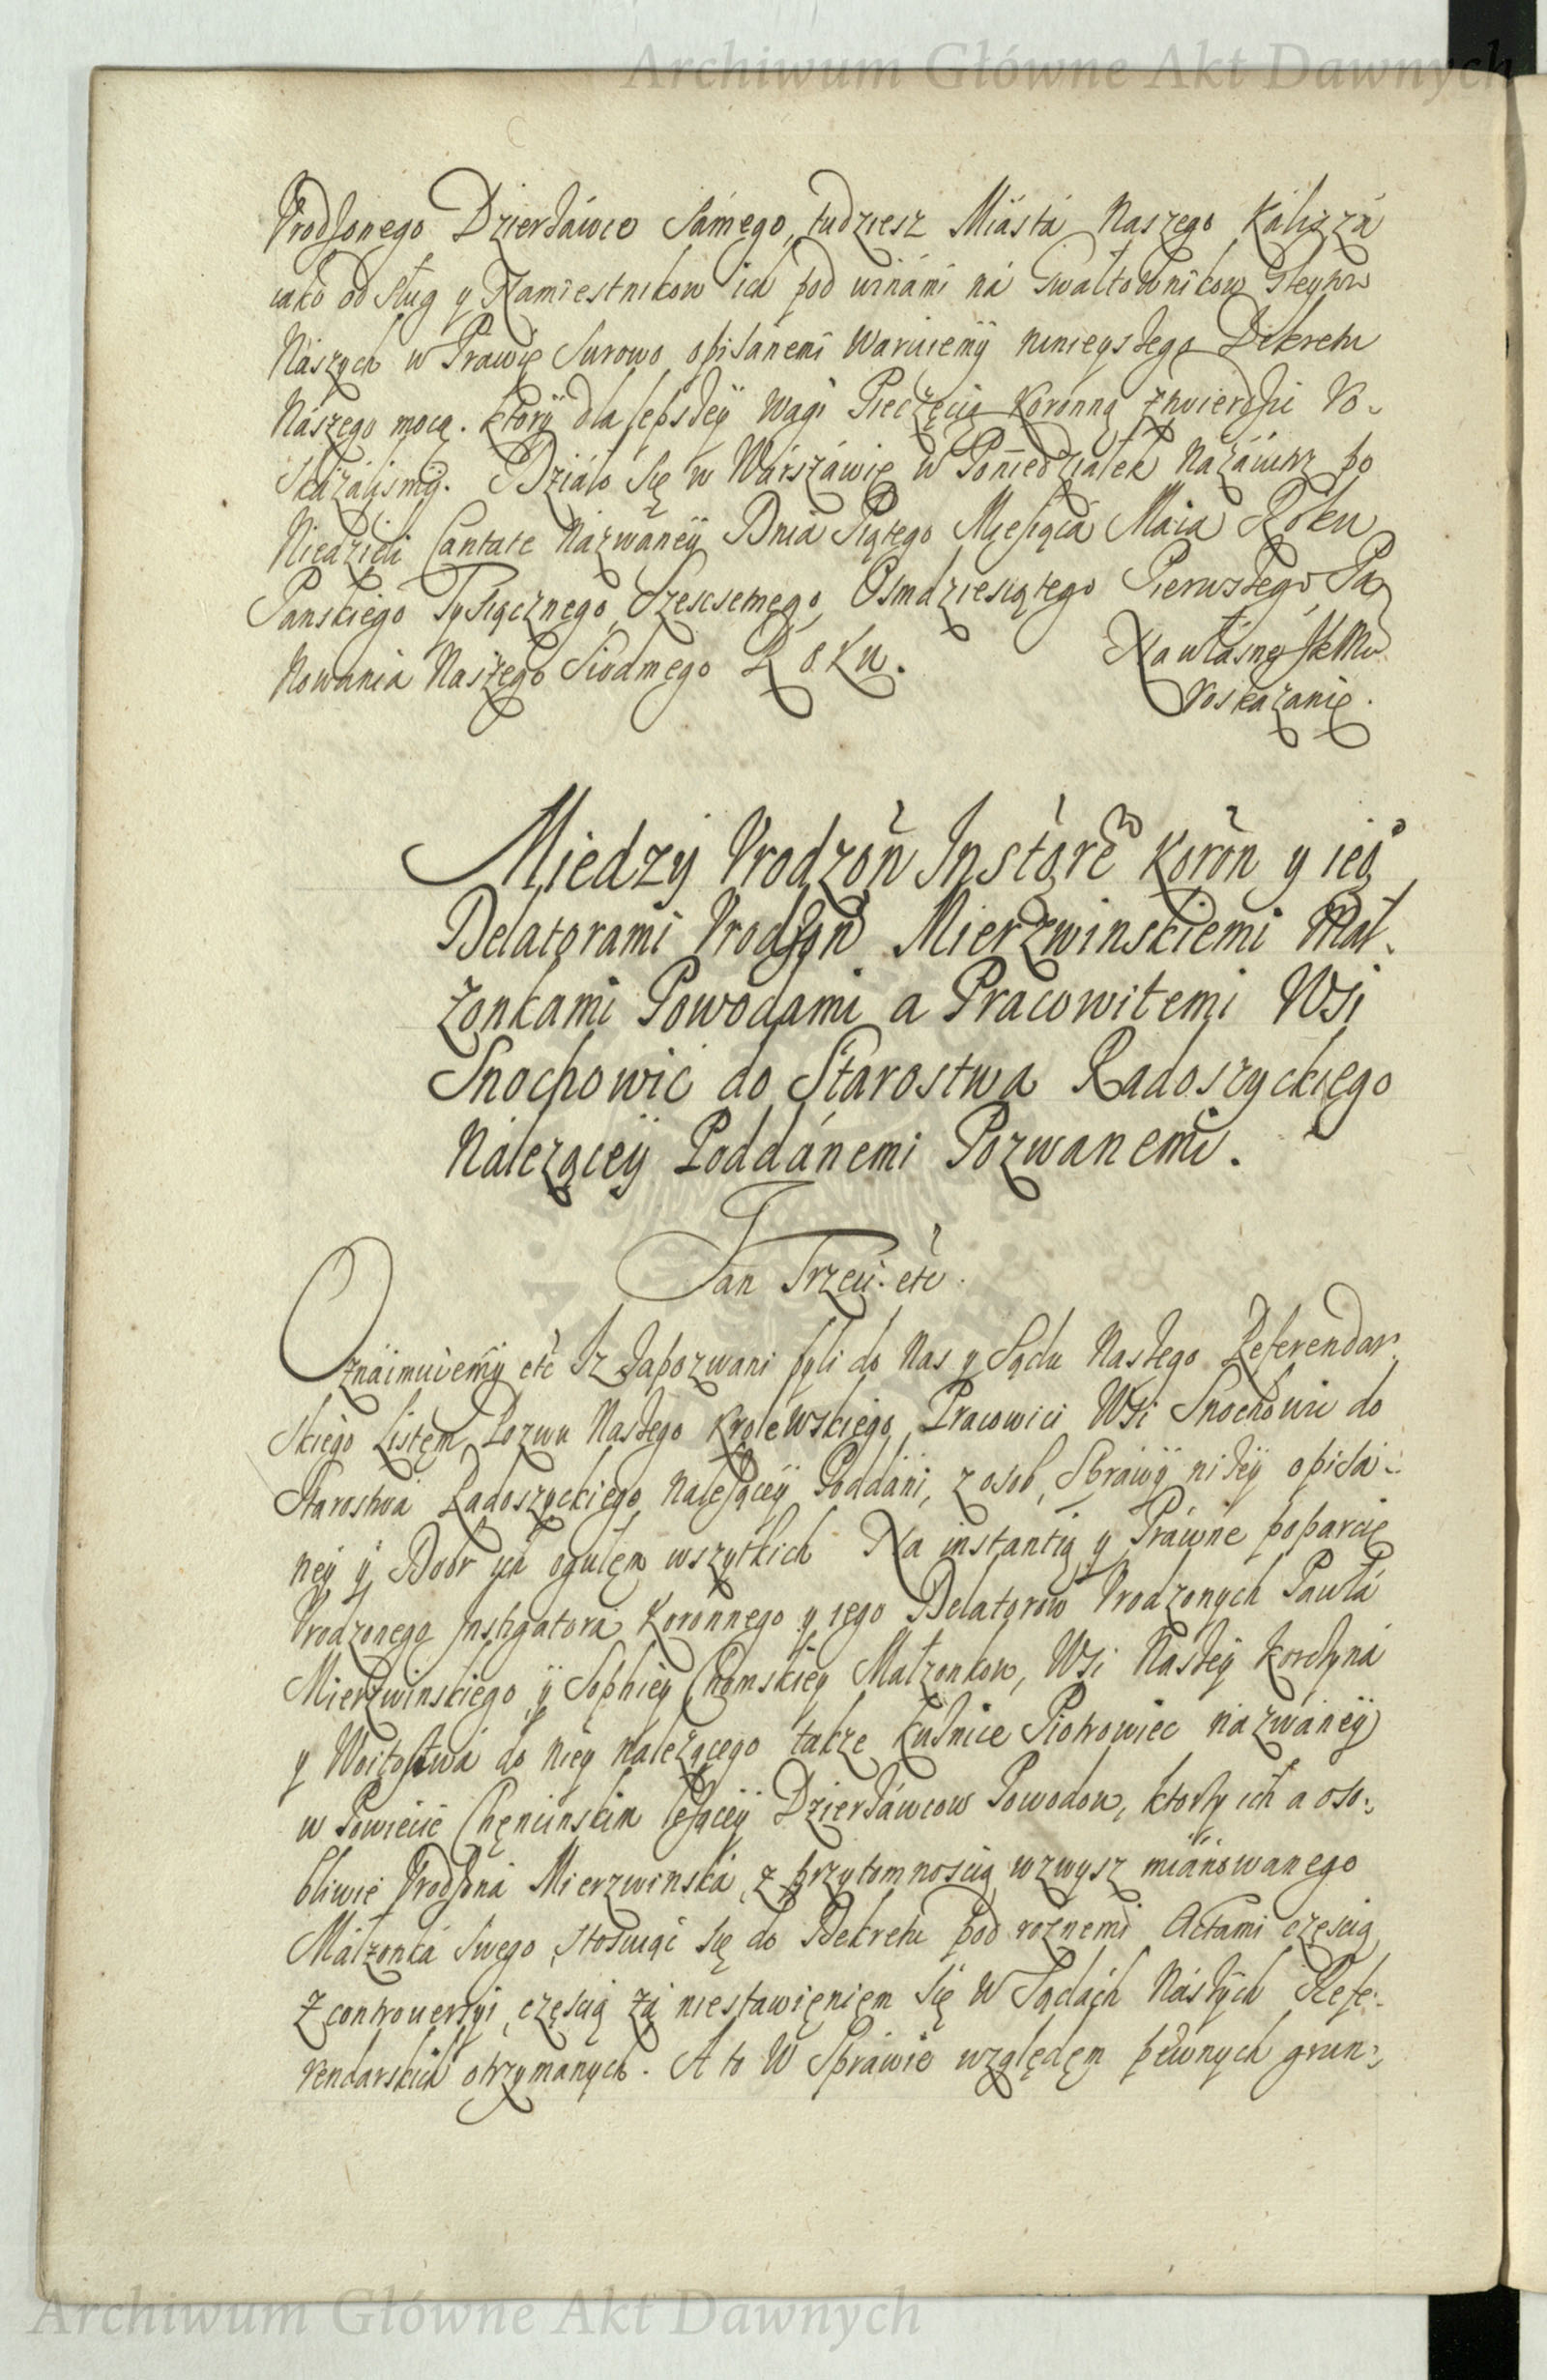 Archiwum Główne Akt Dawnych
Vrodzonego Dzierżáwce sámego, tudziesz Miástá Naszego Káliszá
iako od sług y Namiestnikow ich pod winámi ná Gwałtownikow Gleytow
Nászych w Prawie surowo opisánemi waruiemy ninieyszego Dekretu
Nászego mocą. Ktory dla lepszey wagi Pieczęcią Koronną ztwierdzić ro-
skázálismy. Działo się w Wárszáwie w Poniedziałek Názáiutrz po
Niedzieli Cantate Názwáney Dnia Piątego Miesiącá Máia Roku
Panskiego Tysiącznego, Szescsetnego, Osmdziesiątego Pierwszego Pa-
nowania Naszego Siodmego Roku.
Na własne JKMci
roskazanie.
Miedzy Vrodzon Instgre Koron y ieo
Delatorami Vrodzon Mierzwinskiemi Mał-
zonkami Powodami a Pracowitemi Wsi
Snochowic do Starostwa Radoszyckiego
Nálezącey Poddánemi Pozwanemi.
Jan Trzeci etc.
Oznáimuiemy etc Iz Zapozwani byli do Nas y Sądu Naszego Referendar-
skiego Listem Pozwu Naszego Krolewskiego Pracowici Wsi Snochowic do
Starostwá Radoszyckiego należącey Poddáni, z osob, Spráwy niżey opisá-
ney y Dobr ich ogułem wszytkich Na instantią y Práwne poparcie
Vrodzonego Instigatorá Koronnego y iego Delatorow Vrodzonych Pawłá
Mierzwinskiego y Sophiey Chomskiey Małzonkow, Wsi Naszey
y Woitostwá do niey nalezącego także Kuźnice Piotrowiec názwáney
w Powiecie Chęncinskim leżącey Dzierżáwcow Powodow, ktorzy ich a oso-
bliwie Vrodzona Mierzwinska z przytomnoscią wzwysz miánowanego
Máłzonká Swego, stosuiąc się do Dekretu pod roznemi Actami częscią
z controuersyi, częscią zá niestawieniem się w Sądách Nászych Refe-
rendarskich otrzymánych. A to w Spráwie względem pewnych grun-
Archiwum Główne Akt Dawnych